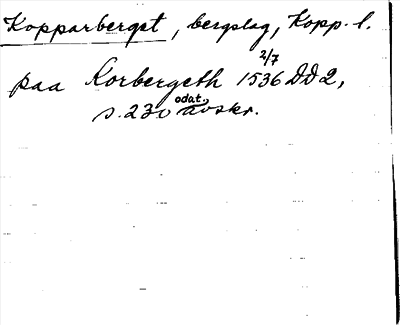 Kopparberget, bergslag, Kopp. l.
paa Korbergeth 1536 2/7 DD2,
s. 230 odat. avskr.